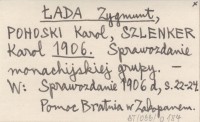 ŁADA Zygmunt,
POHOSKI Karol, SZLENKER
Karol 1906. Sprawozdanie
monachijskiej grupy. —
W: Sprawozdanie 1906 d, s. 22-24
Pomoc Bratnia w Zakopanem.